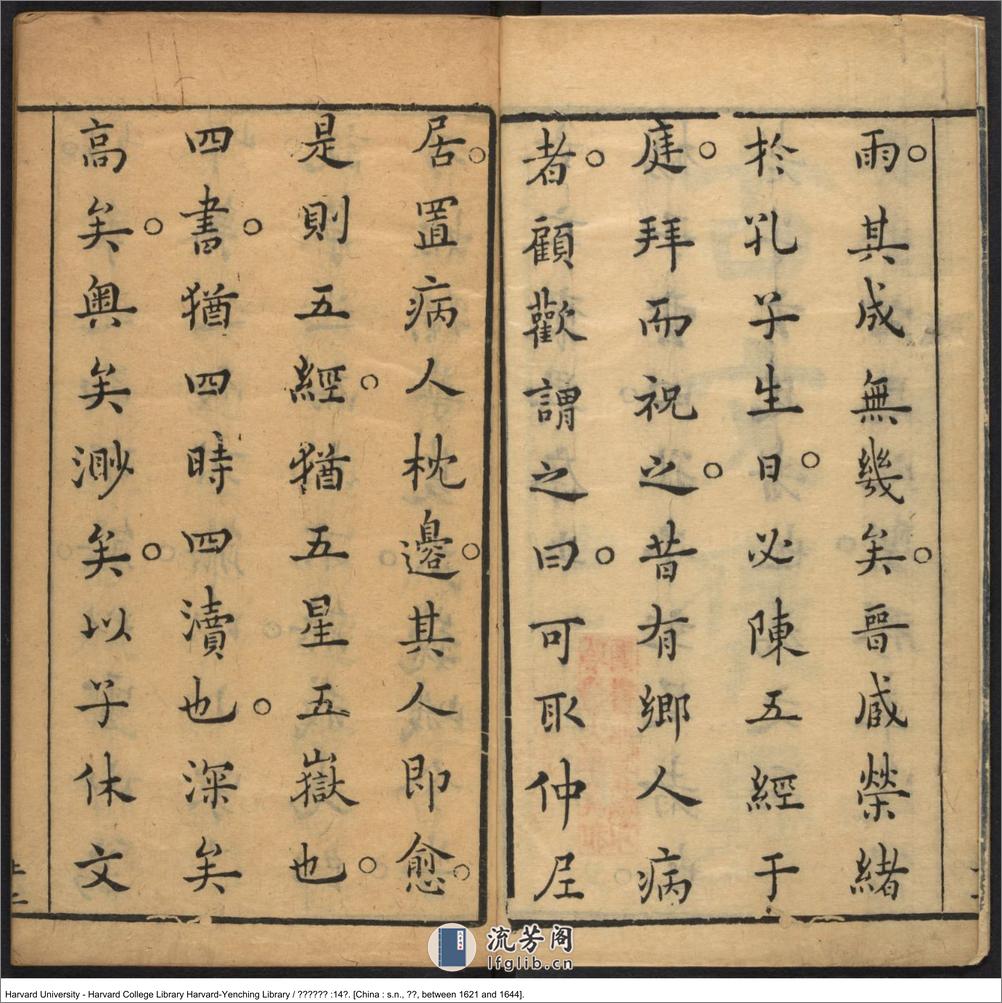 雨其成無幾矣晉臧榮緒
於孔子生日必陳五經于
庭拜而祝之昔有鄉人病
者顧歡謂之曰可取仲尼
居置病人枕邊其人即愈
是則五經猶五星五嶽也
四書猶四時四瀆也深矣
高矣奧矣渺矣以子休文
流芳阁
lfglib.cn
Harvard University - Harvard College Library Harvard-Yenching Library / ?????? :14?. [China : s.n., ??, between 1621 and 1644].